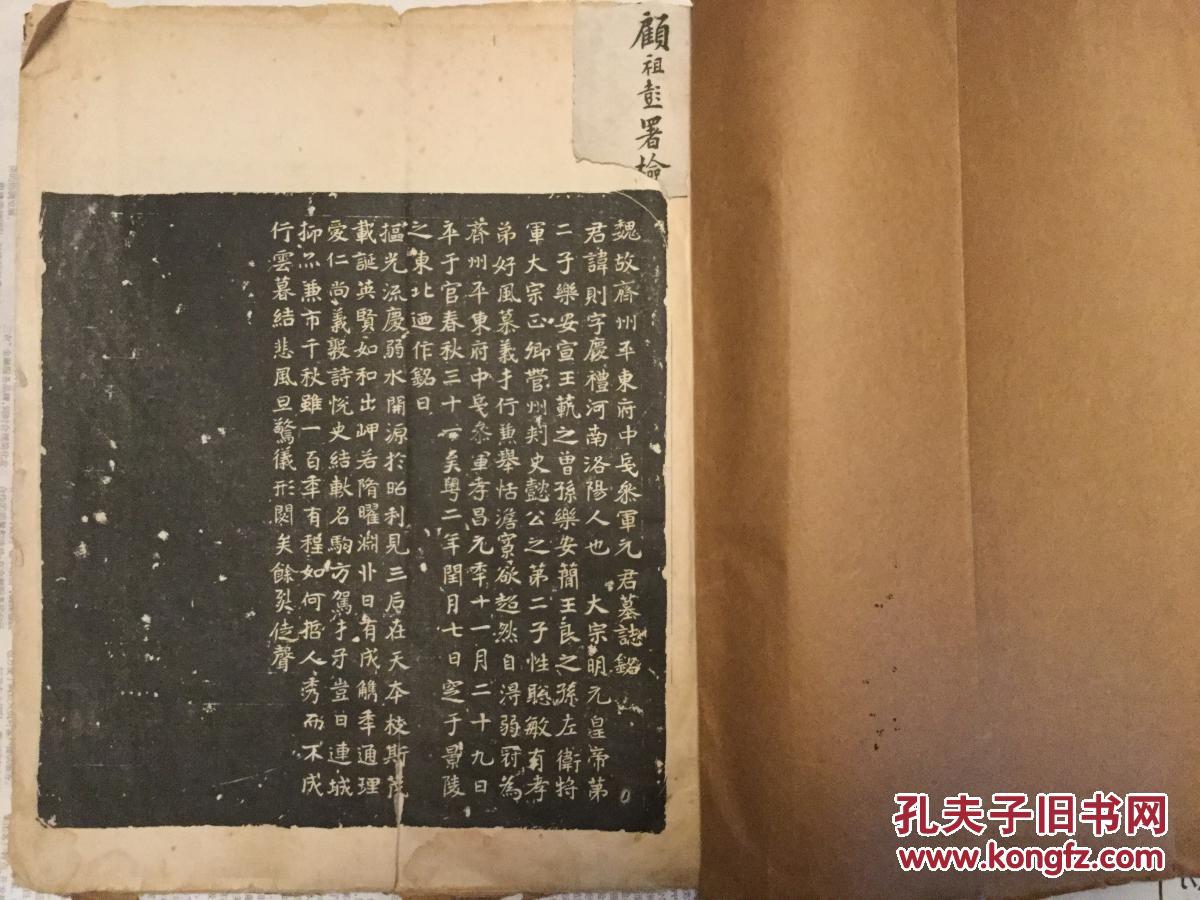 顧祖彭署檢
魏故齊州平東府中兵參軍元君墓誌銘
君諱則字慶禮河南洛陽人也大宗明元皇帝第
二子樂安宣王範之曾孫樂安簡王良之孫左衛將
軍大宗正卿營州刾史懿公之第二子性聰敏有孝
弟好風慕義才行兼舉恬澹寡欲超然自得弱冠為
齊州平東府中兵叅軍孝昌元年十一月二十九日
卒于官春秋三十一矣粵二年閏月七日窆于景陵
之東北迺作銘曰
摳光流慶弱水開源於昭利見三后在天本枝斯茂
載誕英賢如和出岬若隋曜淵丱日有成觿年通理
愛仁尚義敦詩悅史結軑名駒方駕才子豈曰連城
抑亦兼市千秋雖一百年有程如何哲人秀而不成
行雲暮結悲風旦驚儀形閟矣餘徒聲
孔夫子旧书网
www.kongfz.com